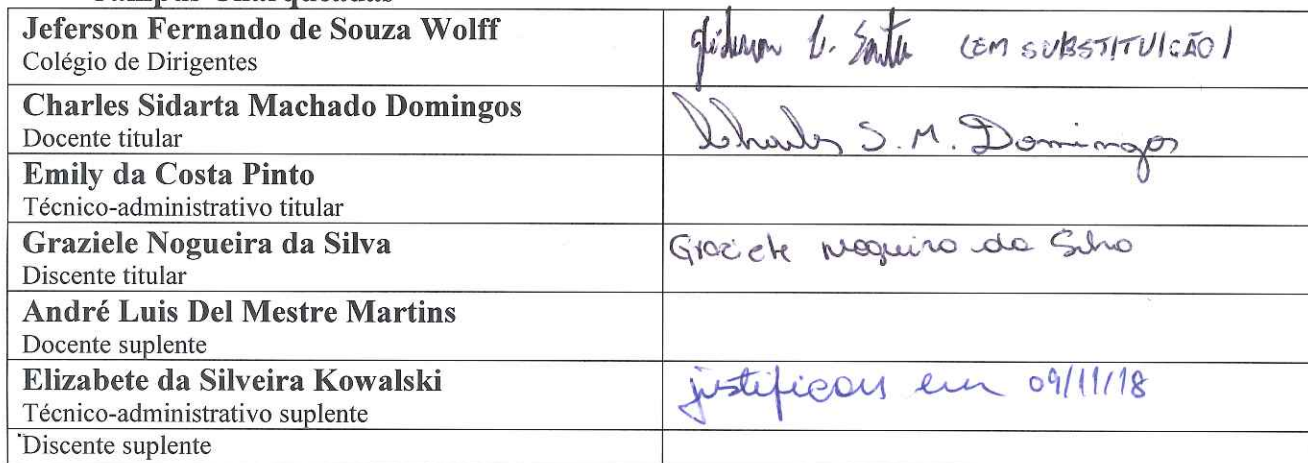 Jeferson Fernando de Souza Wolff
Colégio de Dirigentes
(EM SUBSTITUIÇÃO)
Charles Sidarta Machado Domingos
Docente titular
Charles S. M. Domingos
Emily da Costa Pinto
Técnico-administrativo titular
Graziele Nogueira da Silva
Discente titular
Graziele Nogueira da Silva
André Luis Del Mestre Martins
Docente suplente
Elizabete da Silveira Kowalski
Técnico-administrativo suplente
justificou em 09/11/18
Discente suplente